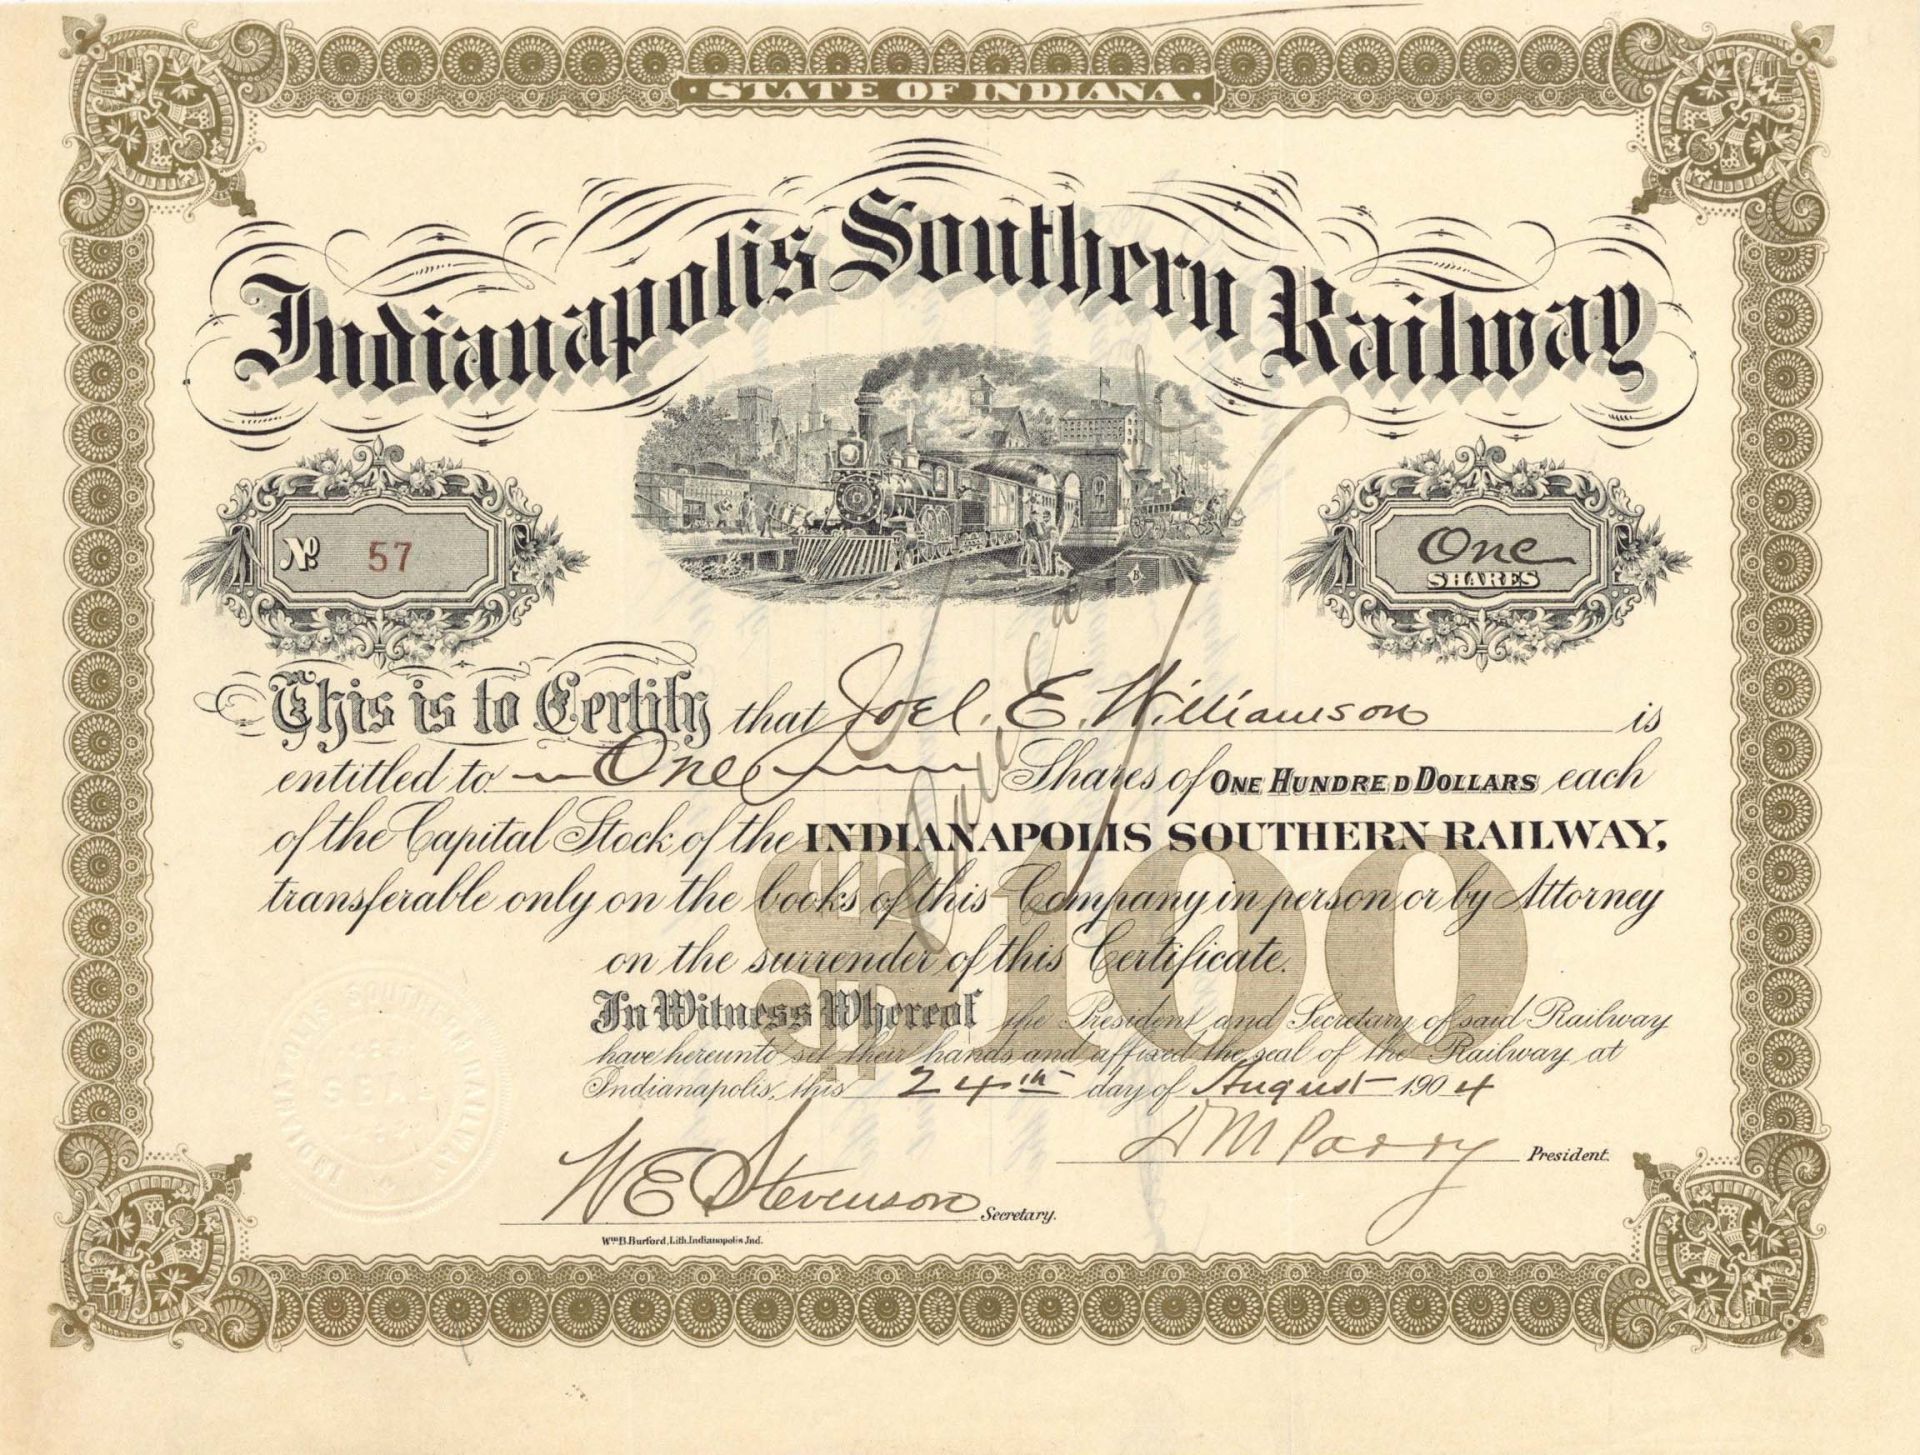 STATE OF INDIANA.
Indianapolis Southern Railway
No. 57
One
SHARES
This is to Certify that Joel. E. Williamson is
entitled to One Shares of ONE HUNDRED DOLLARS each
of the Capital Stock of the INDIANAPOLIS SOUTHERN RAILWAY,
transferable only on the books of this Company in person or by Attorney
on the surrender of this Certificate.
$100
In Witness Whereof the President and Secretary of said Railway
have hereunto set their hands and affixed the seal of the Railway at
Indianapolis, this 24th day of August 1904
D M Parry President.
W E Stevenson Secretary.
Wm. B. Burford, Lith. Indianapolis Ind.
INDIANAPOLIS SOUTHERN RAILWAY
SEAL
Cancelled